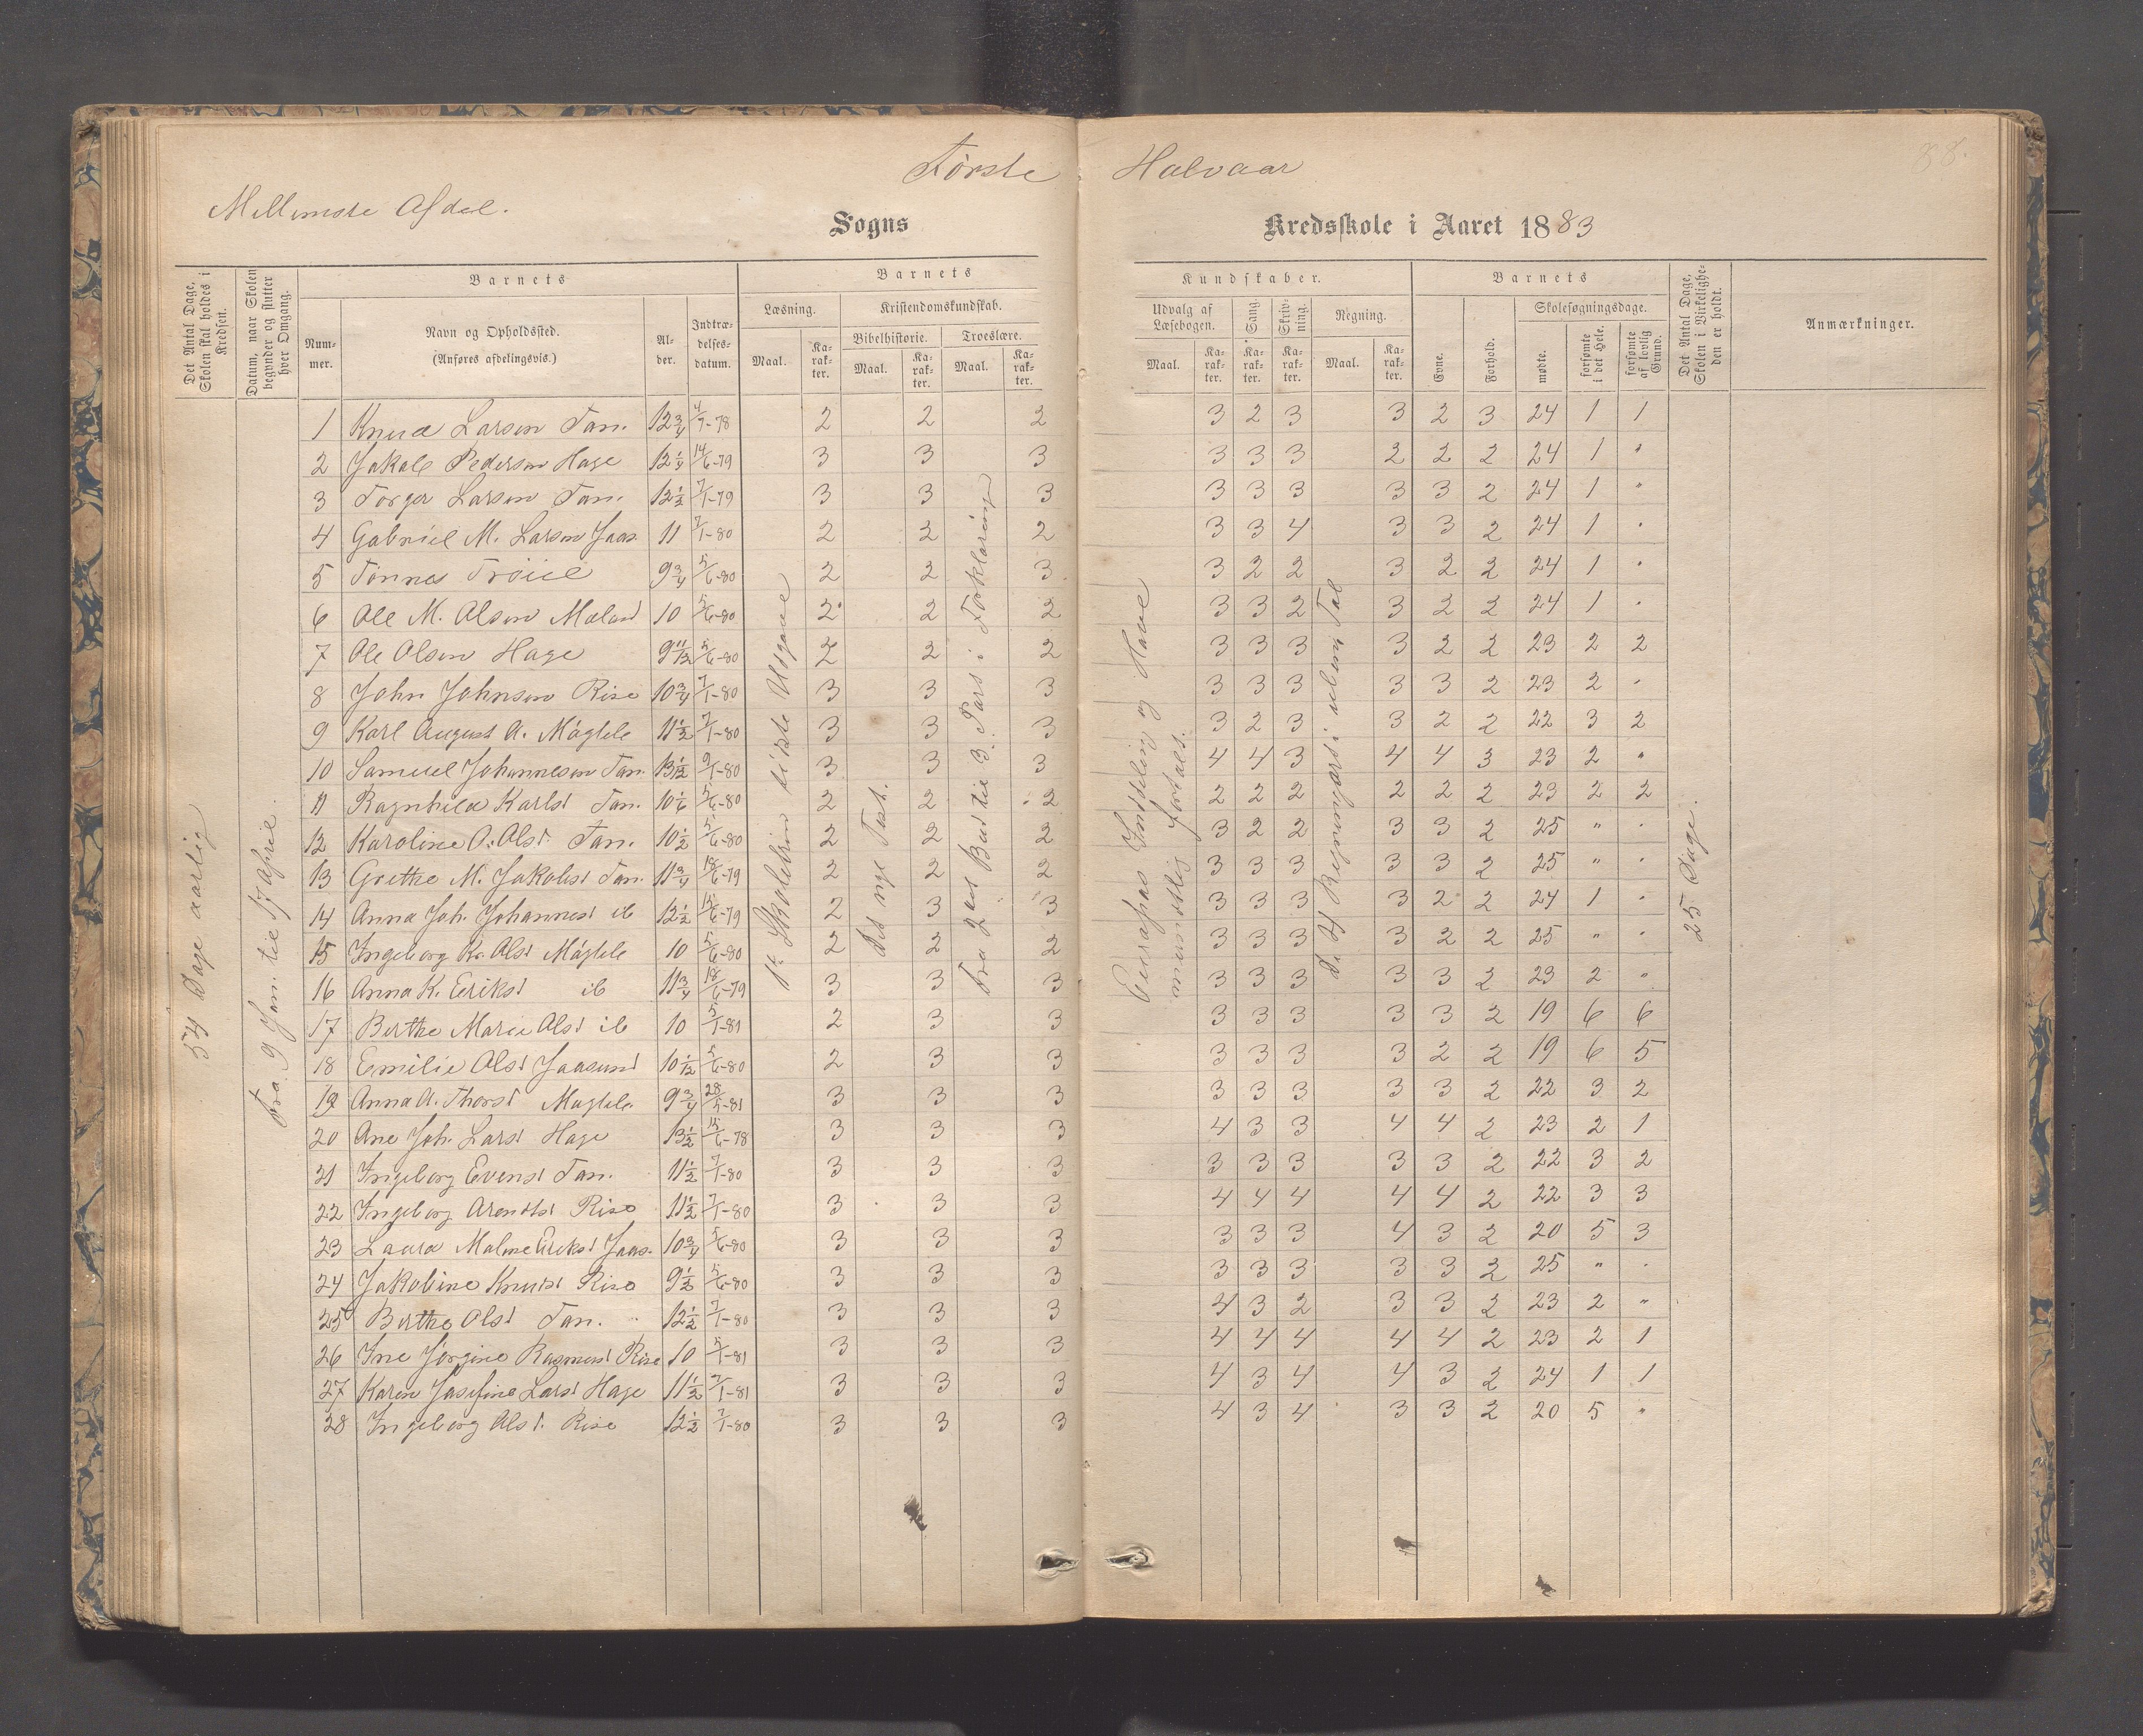 Første Halvaar
88.
Mellemste Afdel.
Sogns Kredsskole i Aaret 1883
Det Antal Dage, Skolen skal holdes i Kredsen.
Datum, naar Skolen begynder og slutter hver Omgang.
Barnets
Nummer.
Navn og Opholdssted.
(Anføres afdelingsvis.)
Alder.
Indtrædelsesdatum.
Barnets Kundskaber.
Læsning.
Maal.
Karakter.
Kristendomskundskab.
Bibelhistorie.
Maal.
Karakter.
Troeslære.
Maal.
Karakter.
Udvalg af Læsebogen.
Maal.
Karakter.
Sang.
Karakter.
Skrivning.
Karakter.
Regning.
Maal.
Karakter.
Barnets
Evne.
Forhold.
Skolesøgningsdage.
mødte.
forsømte i det Hele.
forsømte af lovlig Grund.
Det Antal Dage, Skolen i Virkeligheden er holdt.
Anmærkninger.
54 Dage aarlig
Fra 9 Jan. til 17 April.
Det nye Test.
Fra 2det Bud til 3. Pars i Forklaringen
Europas Inddeling og Have
mundtlig fortalt.
25 Dage.
1 Knud Larsen Tan. 12 3/4 4/7-78 2 2 2 3 2 3 3 2 3 24 1 1
2 Jakob Pedersen Hage 12 1/4 14/6-79 3 3 3 3 3 3 2 2 2 24 1 "
3 Torger Larsen Tan. 12 1/2 7/1-79 3 3 3 3 3 3 3 3 2 24 1 "
4 Gabriel M. Larsen Jaas. 11 7/1-80 2 2 2 3 3 4 3 3 2 24 1 "
5 Tønnes Trøiel 9 3/4 5/6-80 2 2 3 3 2 2 3 2 2 24 1 "
6 Ole M. Olsen Meland 10 5/6-80 2 2 2 3 3 2 3 2 2 24 1 "
7 Ole Olsen Hage 9 11/12 5/6-80 2 2 2 3 3 3 3 2 2 23 2 2
8 John Johnsen Rise 10 3/4 7/1-80 3 3 3 3 3 3 3 3 2 23 2 "
9 Karl August A. Møglebe 11 1/2 7/1-80 3 3 3 3 2 3 3 2 2 22 3 2
10 Samuel Johannesen Tan. 13 1/12 9/1-80 3 3 3 4 4 3 4 4 3 23 2 "
11 Ragnhild Karlsd Tan. 10 1/6 5/6-80 2 2 2 2 2 2 2 2 2 23 2 2
12 Karoline O. Olsd. Tan. 10 1/2 5/6-80 2 2 2 3 2 2 3 3 2 25 " "
13 Grethe M. Jakobsd Tan. 11 3/4 18/6-79 2 2 2 3 3 3 3 3 2 25 " "
14 Anna Joh. Johannesd ib 12 1/2 14/6-79 2 3 3 3 3 3 3 2 2 24 1 "
15 Ingeborg K. Olsd Møglebe 10 5/6-80 2 2 2 3 3 3 3 2 2 25 " "
16 Anna K. Eriksd ib 11 3/4 18/6-79 3 3 3 3 3 3 3 3 2 23 2 "
17 Berthe Marie Olsd ib 10 5/1-81 2 3 3 3 3 3 3 3 2 19 6 6
18 Emilie Olsd Jaasund 10 1/12 5/6-80 2 3 3 3 3 3 3 2 2 19 6 5
19 Anna A. Thorsd Møglebe 9 3/4 28/5-81 3 3 3 3 3 3 3 3 2 22 3 2
20 Ane Joh. Larsd Hage 13 1/2 15/6-78 3 3 3 4 3 3 4 4 2 23 2 1
21 Ingeborg Evensd Tan. 11 1/2 7/1-80 3 3 3 3 3 3 3 3 2 22 3 2
22 Ingeborg Arentsd Rise 11 1/2 7/1-80 3 3 3 4 4 4 4 4 2 22 3 3
23 Laura Malene Eriksd Jaas. 10 3/4 5/6-80 3 3 3 3 3 3 4 3 2 20 5 3
24 Jakobine Knutsd Rise 9 1/2 5/6-80 3 3 3 3 3 3 3 3 2 25 " "
25 Berthe Olsd Tan. 12 1/2 7/1-80 3 3 3 4 3 2 3 3 2 23 2 "
26 Ine Jørgine Rasmusd Rise 10 5/1-81 3 3 3 4 4 4 4 4 2 23 2 1
27 Karen Josefine Larsd Hage 11 1/2 7/1-81 3 3 3 4 3 4 4 3 2 24 1 1
28 Ingeborg Olsd. Rise 12 1/2 7/1-80 3 3 3 4 3 4 3 3 2 20 5 "